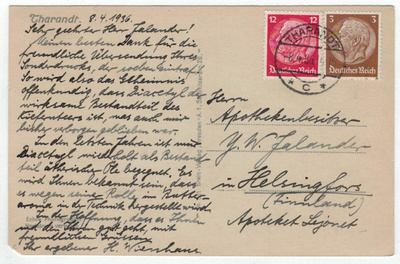 Tharandt. 8.4.1936.
Sehr geehrter Herr Jalander!
Meinen besten Dank für die
freundliche Übersendung Ihres
Sonderdrucks, der
So wird also das Geheimnis
offenkundig, dass Diacetyl der
wirksame Bestandteil des
Kiefernteers ist, was auch mir
bisher verborgen geblieben war.
In den letzten Jahren ist mir
Diacetyl wiederholt als Bestand-
teil ätherischer Öle begegnet. Es
wird Ihnen bekannt sein, dass
es wegen seiner Rolle im Butter-
aroma in der Technik hergestellt wird.
In der Hoffnung, dass es Ihnen
und den Ihren gut geht, mit
freundlichen Grüssen
Ihr ergebener H. Wienhaus
12 12
Deutsches Reich
3 3
Deutsches Reich
THARANDT
C
Herrn
Apothekenbesitzer
Y. W. Jalander
in Helsingfors
(Finnland)
Apoteket Lejonet